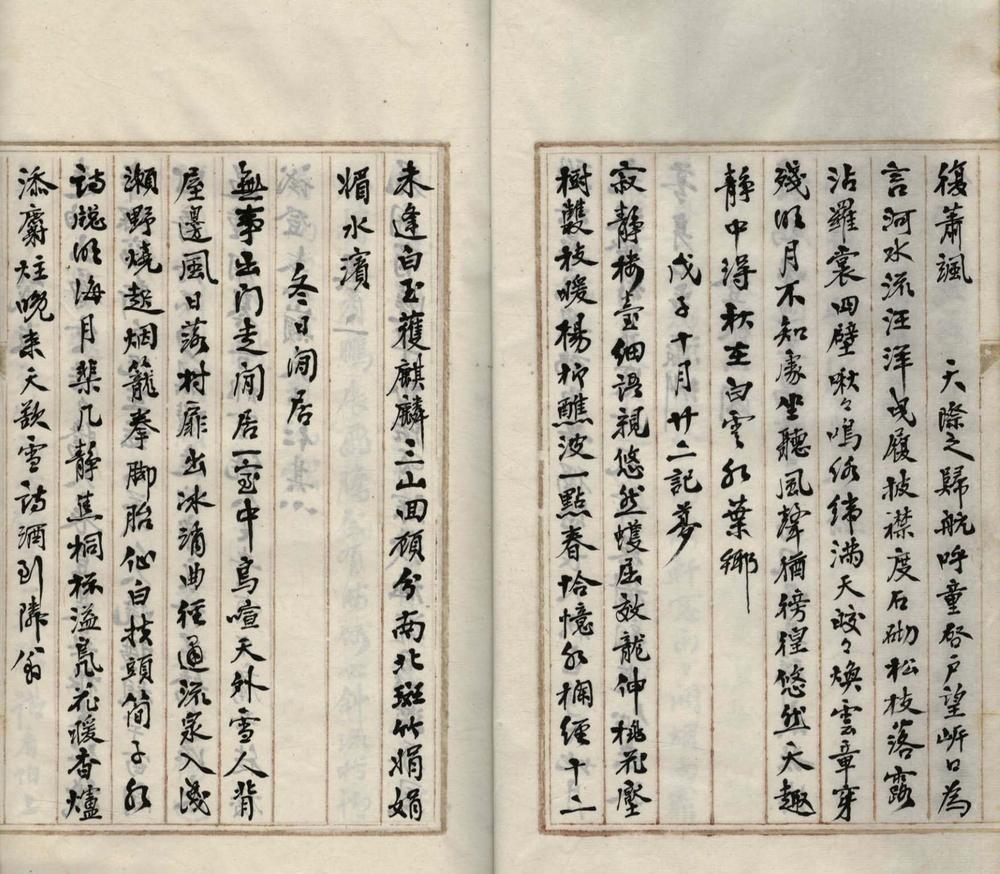 復蕭颯 天際之歸航呼童啓戶望岍口為
言河水流汪洋曳履披襟度石砌松枝落露
沾羅裳四壁啾々鳴絡緯滿天皎々煥雲章穿
殘明月不知處坐聽風聲猶徬徨悠然天趣
靜中得秋在白雲紅葉鄉
戊子十月廿二記夢
寂靜樓臺細語親悠然蠖屈效龍伸桃花壓
樹雙枝暖楊柳蘸波一點春恰憶紅欄經十二
未逢白玉獲麒麟三山回頭分南北斑竹娟娟
媚水濱
冬日閒居
無事出門走閒居一室中鳥喧天外雪人背
屋邊風日落村扉出冰消曲徑通流泉入淺
瀨野燒起烟籠拳脚胎仙白扶頭筒子紅
詩牕明海月棐几靜焦桐杯溢鳧花暖香爐
添麝炷晚來天欲雪詩酒到隣翁